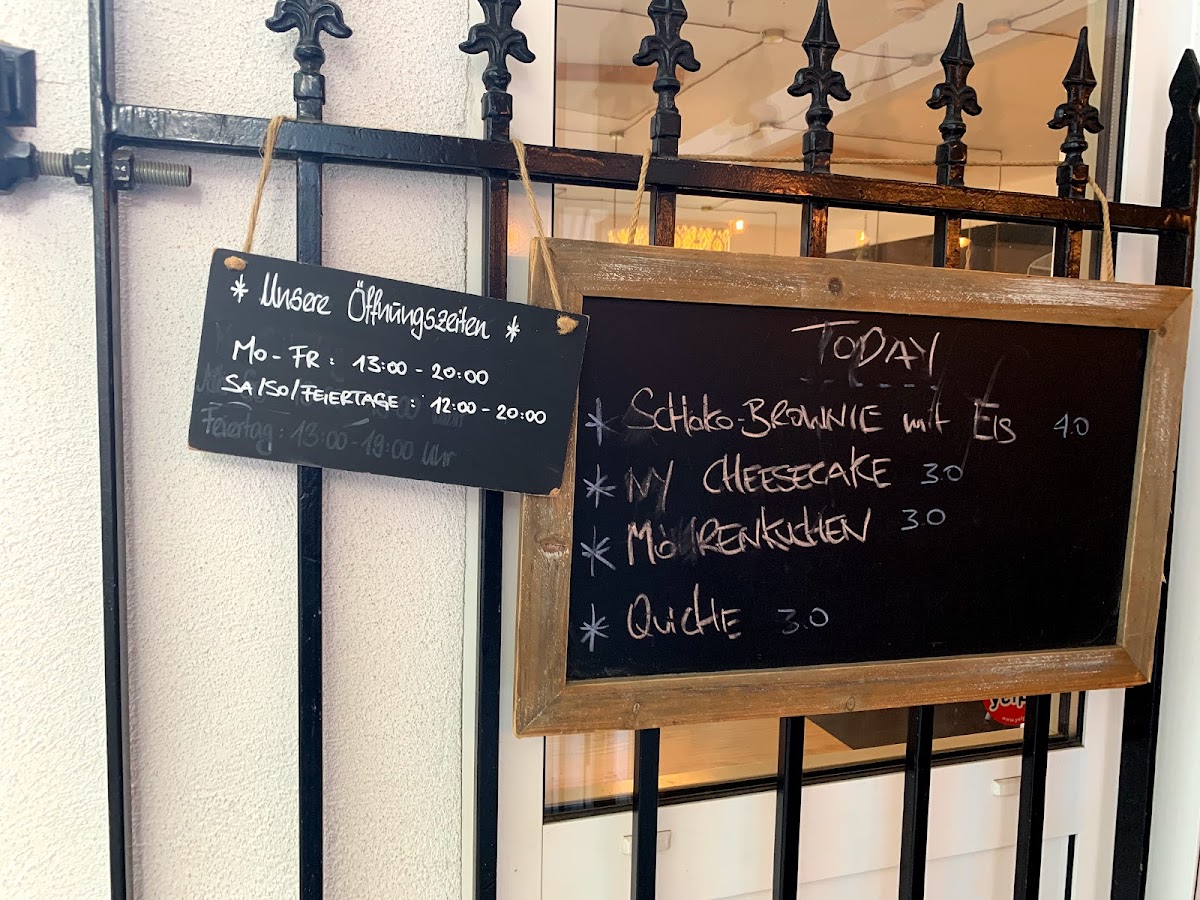 * Unsere Öffnungszeiten *
Mo - Fr : 13:00 - 20:00
SA/SO/FEIERTAGE : 12:00 - 20:00
Feiertag : 13:00 - 19:00 Uhr
TODAY
* SCHoko-BROWNIE mit EIS 4.0
* NY CHEESECAKE 3.0
* MÖHRENKUCHEN 3.0
* QuicHE 3.0
yelp